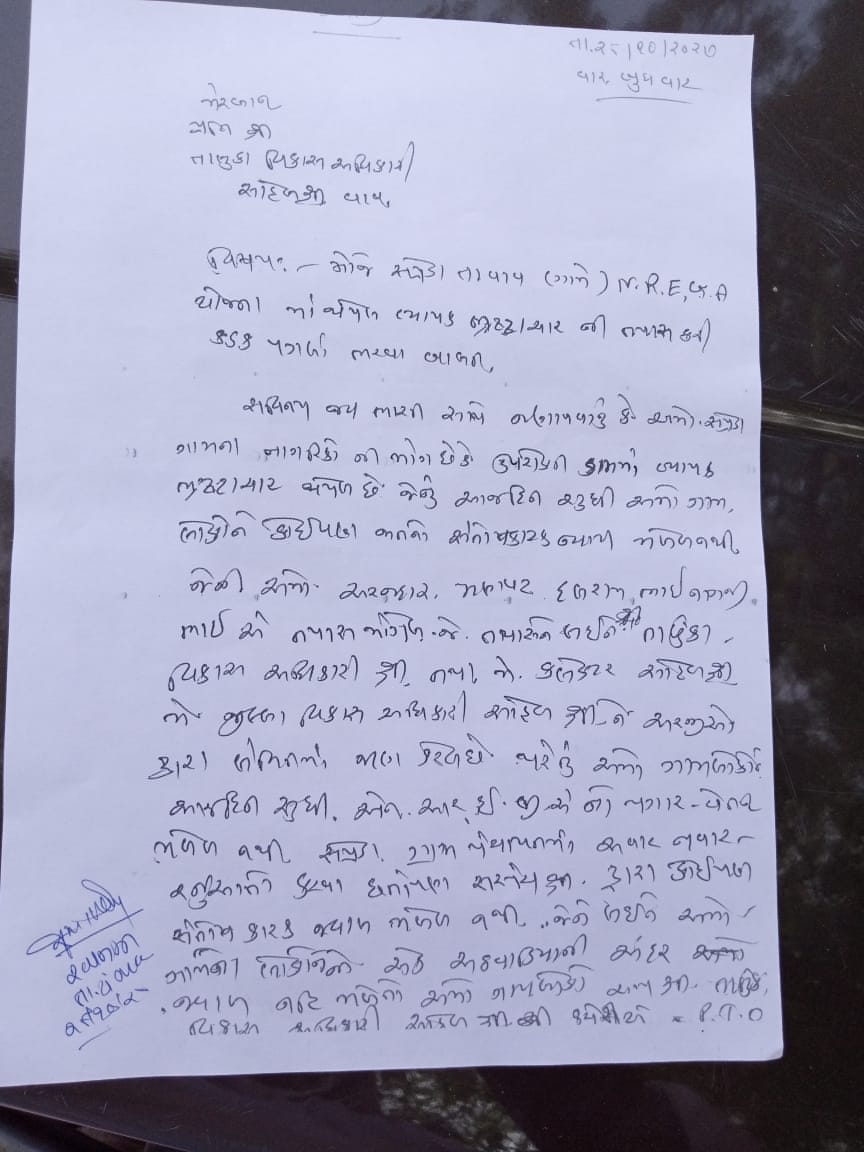 તા.૨૮/૧૦/૨૦૨૦
વાર, બુધવાર
મેરબાન
પ્રતિ શ્રી
તાલુકા વિકાસ અધિકારી
સાહેબશ્રી વાવ,
વિષય:- મોજે સપ્રેડા તા વાવ (ગામે) N.R.E.G.A
યોજના માં થયેલ વ્યાપક ભ્રષ્ટાચાર ની તપાસ કરી
કડક પગલાં ભરવા બાબત,
સવિનય જય ભારત સાથે જણાવવાનું કે અમો સપ્રેડા
ગામના નાગરિકો ની માંગ છે કે ઉપરોક્ત કામમાં વ્યાપક
ભ્રષ્ટાચાર થયેલ છે જેનું આજદિન સુધી અમો ગામ,
લોકોને કોઈપણ જાતનો સંતોષકારક ન્યાય મળેલ નથી,
જેથી અમો અરજદાર,
ભાઈ એ તપાસ માંગેલ જે તપાસને લઈને શ્રી તાલુકા
વિકાસ અધિકારી શ્રી, તથા મે. કલેક્ટર સાહેબશ્રી
મે જીલ્લા વિકાસ અધિકારી સાહેબ શ્રી ને અરજીઓ
દ્વારા લેખિતમાં જાણ કરેલ છે પરંતુ અમો ગામલોકોને
આજદિન સુધી, એન.આર.ઈ.જી.એ નો પગાર - વેતન
મળેલ નથી સપ્રેડા, ગ્રામ પંચાયતમાં અવાર નવાર -
રજુઆતો કરવા છતાંપણ સરપંચશ્રી. દ્વારા કોઈપણ
સંતોષ કારક જવાબ મળેલ નથી, જેને લઈને અમો
ગામના લોકોને એક અઠવાડિયાની અંદર
જવાબ નહિ મળેતો અમો ગામલોકો સાથ શ્રી. તાલુકા,
વિકાસ અધિકારી સાહેબ શ્રી.ની કચેરીએ = P.T.O